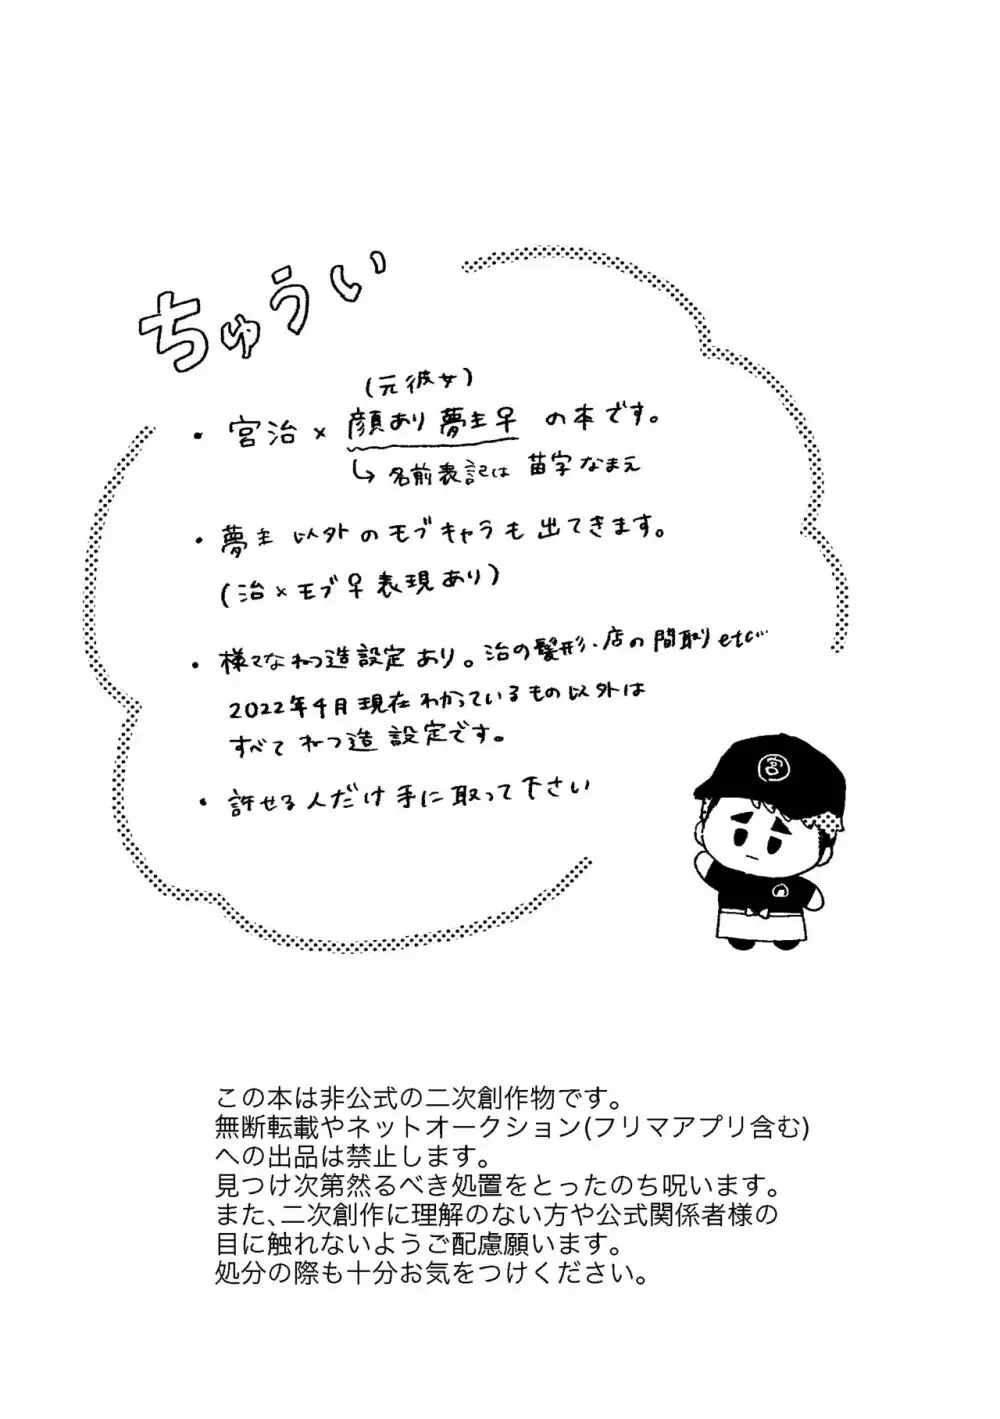 ちゅうい
(元彼女)
・宮治×顔あり夢主♀の本です。
↳名前表記は苗字なまえ
・夢主以外のモブキャラも出てきます。
(治×モブ♀表現あり)
・様々なねつ造設定あり。治の髪形、店の間取りetc…
2022年4月現在わかっているもの以外は
すべてねつ造設定です。
・許せる人だけ手に取って下さい
宮
この本は非公式の二次創作物です。
無断転載やネットオークション(フリマアプリ含む)
への出品は禁止します。
見つけ次第然るべき処置をとったのち呪います。
また、二次創作に理解のない方や公式関係者様の
目に触れないようご配慮願います。
処分の際も十分お気をつけください。